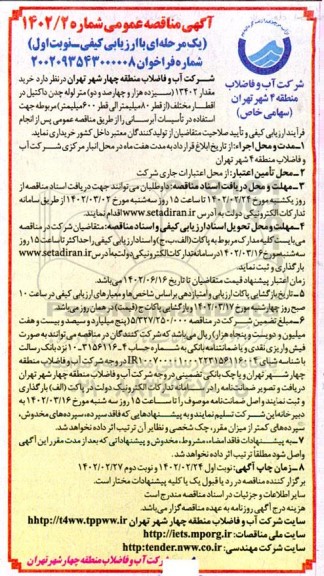 آگهی مناقصه عمومی شماره ۱۴۰۲/۲
(یک مرحله‌ای با ارزیابی کیفی ـ نوبت اول)
شماره فراخوان ۲۰۰۲۰۹۳۵۴۳۰۰۰۰۰۸
شرکت آب و فاضلاب
منطقه ۴ شهر تهران
(سهامی خاص)
شرکت آب و فاضلاب منطقه چهار شهر تهران در نظر دارد خرید
مقدار ۱۳۴۰۲ (سیزده هزار و چهارصد و دو) متر لوله چدن داکتیل در
اقطار مختلف (از قطر ۸۰میلیمتر الی قطر ۶۰۰میلیمتر) مربوطه جهت
استفاده در تأسیسات آبرسانی را از طریق مناقصه عمومی پس از انجام
فرآیند ارزیابی کیفی و تأیید صلاحیت متقاضیان از تولیدکنندگان معتبر داخل کشور خریداری نماید.
۱ـ مدت و محل اجراء: از تاریخ ابلاغ قرارداد به مدت هفت ماه در محل انبار مرکزی شرکت آب
و فاضلاب منطقه ۴ شهر تهران
۲ـ محل تأمین اعتبار: از محل اعتبارات جاری شرکت
۳ـ مهلت و محل دریافت اسناد مناقصه: داوطلبان می‌توانند جهت دریافت اسناد مناقصه از
روز یکشنبه مورخ ۱۴۰۲/۰۲/۲۴ تا ساعت ۱۵ روز سه‌شنبه مورخ ۱۴۰۲/۰۳/۰۲ از طریق سامانه
تدارکات الکترونیکی دولت به آدرس www.setadiran.ir اقدام نمایند.
۴ـ مهلت و محل تحویل اسناد ارزیابی کیفی و اسناد مناقصه: متقاضیان شرکت در مناقصه
می‌بایست کلیه مدارک مربوط به پاکات (الف، ب، ج) و اسناد ارزیابی کیفی را حداکثر تا ساعت ۱۵ روز
سه‌شنبه مورخ ۱۴۰۲/۰۳/۱۶ در سامانه تدارکات الکترونیکی دولت به آدرس www.setadiran.ir
بارگذاری و ثبت نمایند.
زمان اعتبار پیشنهاد قیمت متقاضیان تا تاریخ ۱۴۰۲/۰۶/۱۶ می‌باشد.
۵ـ تاریخ بازگشایی پاکات ارزیابی و امتیازدهی براساس شاخص‌ها و معیارهای ارزیابی کیفی در ساعت ۱۰
صبح روز چهارشنبه مورخ ۱۴۰۲/۰۳/۱۷ و بازگشایی پاکات ج (قیمت) در همان روز می‌باشد.
۶ـ مبلغ تضمین شرکت در مناقصه ۵/۳۲۷/۲۵۰/۰۰۰ (پنج میلیارد و سیصد و بیست و هفت
میلیون و دویست و پنجاه هزار) ریال می‌باشد که شرکت‌کنندگان در مناقصه می‌توانند به صورت
فیش واریزی نقدی و یا ضمانتنامه بانکی به شماره حساب
دریافت و تصویر ضمانتنامه را در سامانه تدارکات الکترونیک دولت در پاکت (الف) بارگذاری
و ثبت نمایند و اصل ضمانتنامه موصوف را تا ساعت ۱۵ روز سه‌شنبه مورخ ۱۴۰۲/۰۳/۱۶ به
دبیرخانه این شرکت تسلیم نمایند و به پیشنهادهایی که فاقد سپرده، سپرده‌های مخدوش،
سپرده‌های کمتر از میزان مقرر، چک شخصی و نظایر آن ترتیب اثر داده نخواهد شد.
۷ـ به پیشنهادات فاقد امضاء، مشروط، مخدوش و پیشنهاداتی که بعد از مدت مقرر این آگهی
واصل شود مطلقاً ترتیب اثر داده نخواهد شد.
۸ـ زمان چاپ آگهی: نوبت اول ۱۴۰۲/۰۲/۲۴ و نوبت دوم ۱۴۰۲/۰۲/۲۷
برگزار کننده مناقصه در رد یا قبول یک یا کلیه پیشنهادات مختار است.
سایر اطلاعات و جزئیات در اسناد مناقصه مندرج است
هزینه درج آگهی روزنامه به عهده مناقصه‌گزار می‌باشد.
سایت شرکت آب و فاضلاب منطقه چهار شهر تهران hhtp://t4ww.tppww.ir
سایت ملی مناقصات: http://iets.mporg.ir
سایت شرکت مهندسی: http:tender.nww.co.ir
شرکت آب و فاضلاب منطقه چهار شهر تهران